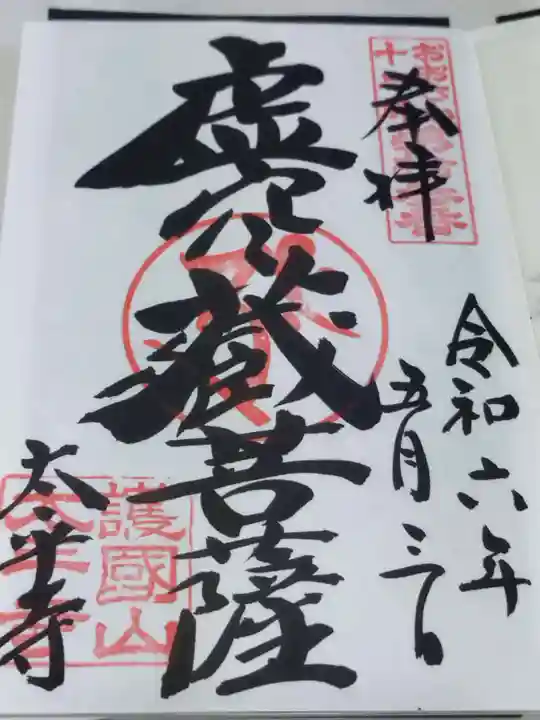 奉拝
令和六年
五月三日
虚空蔵菩薩
太平寺
護國山
太平寺